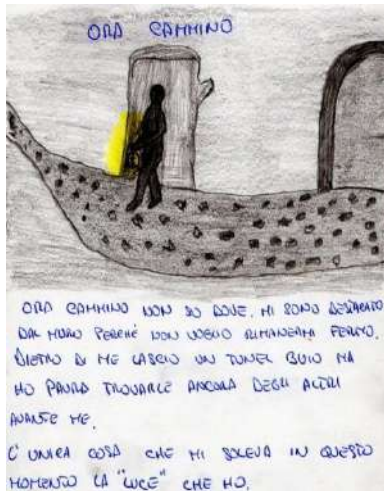 ORA CAMMINO
ORA CAMMINO NON SO DOVE. MI SONO DESTACATO
DAL MURO PERCHÉ NON VOGLIO RIMANERMI FERMO.
DIETRO DI ME LASCIO UN TUNEL BUIO MA
HO PAURA TROVARLE ANCORA DEGLI ALTRI
AVANTE ME.
L'UNICA COSA CHE MI SOLEVA IN QUESTO
MOMENTO LA "LUCE" CHE HO.